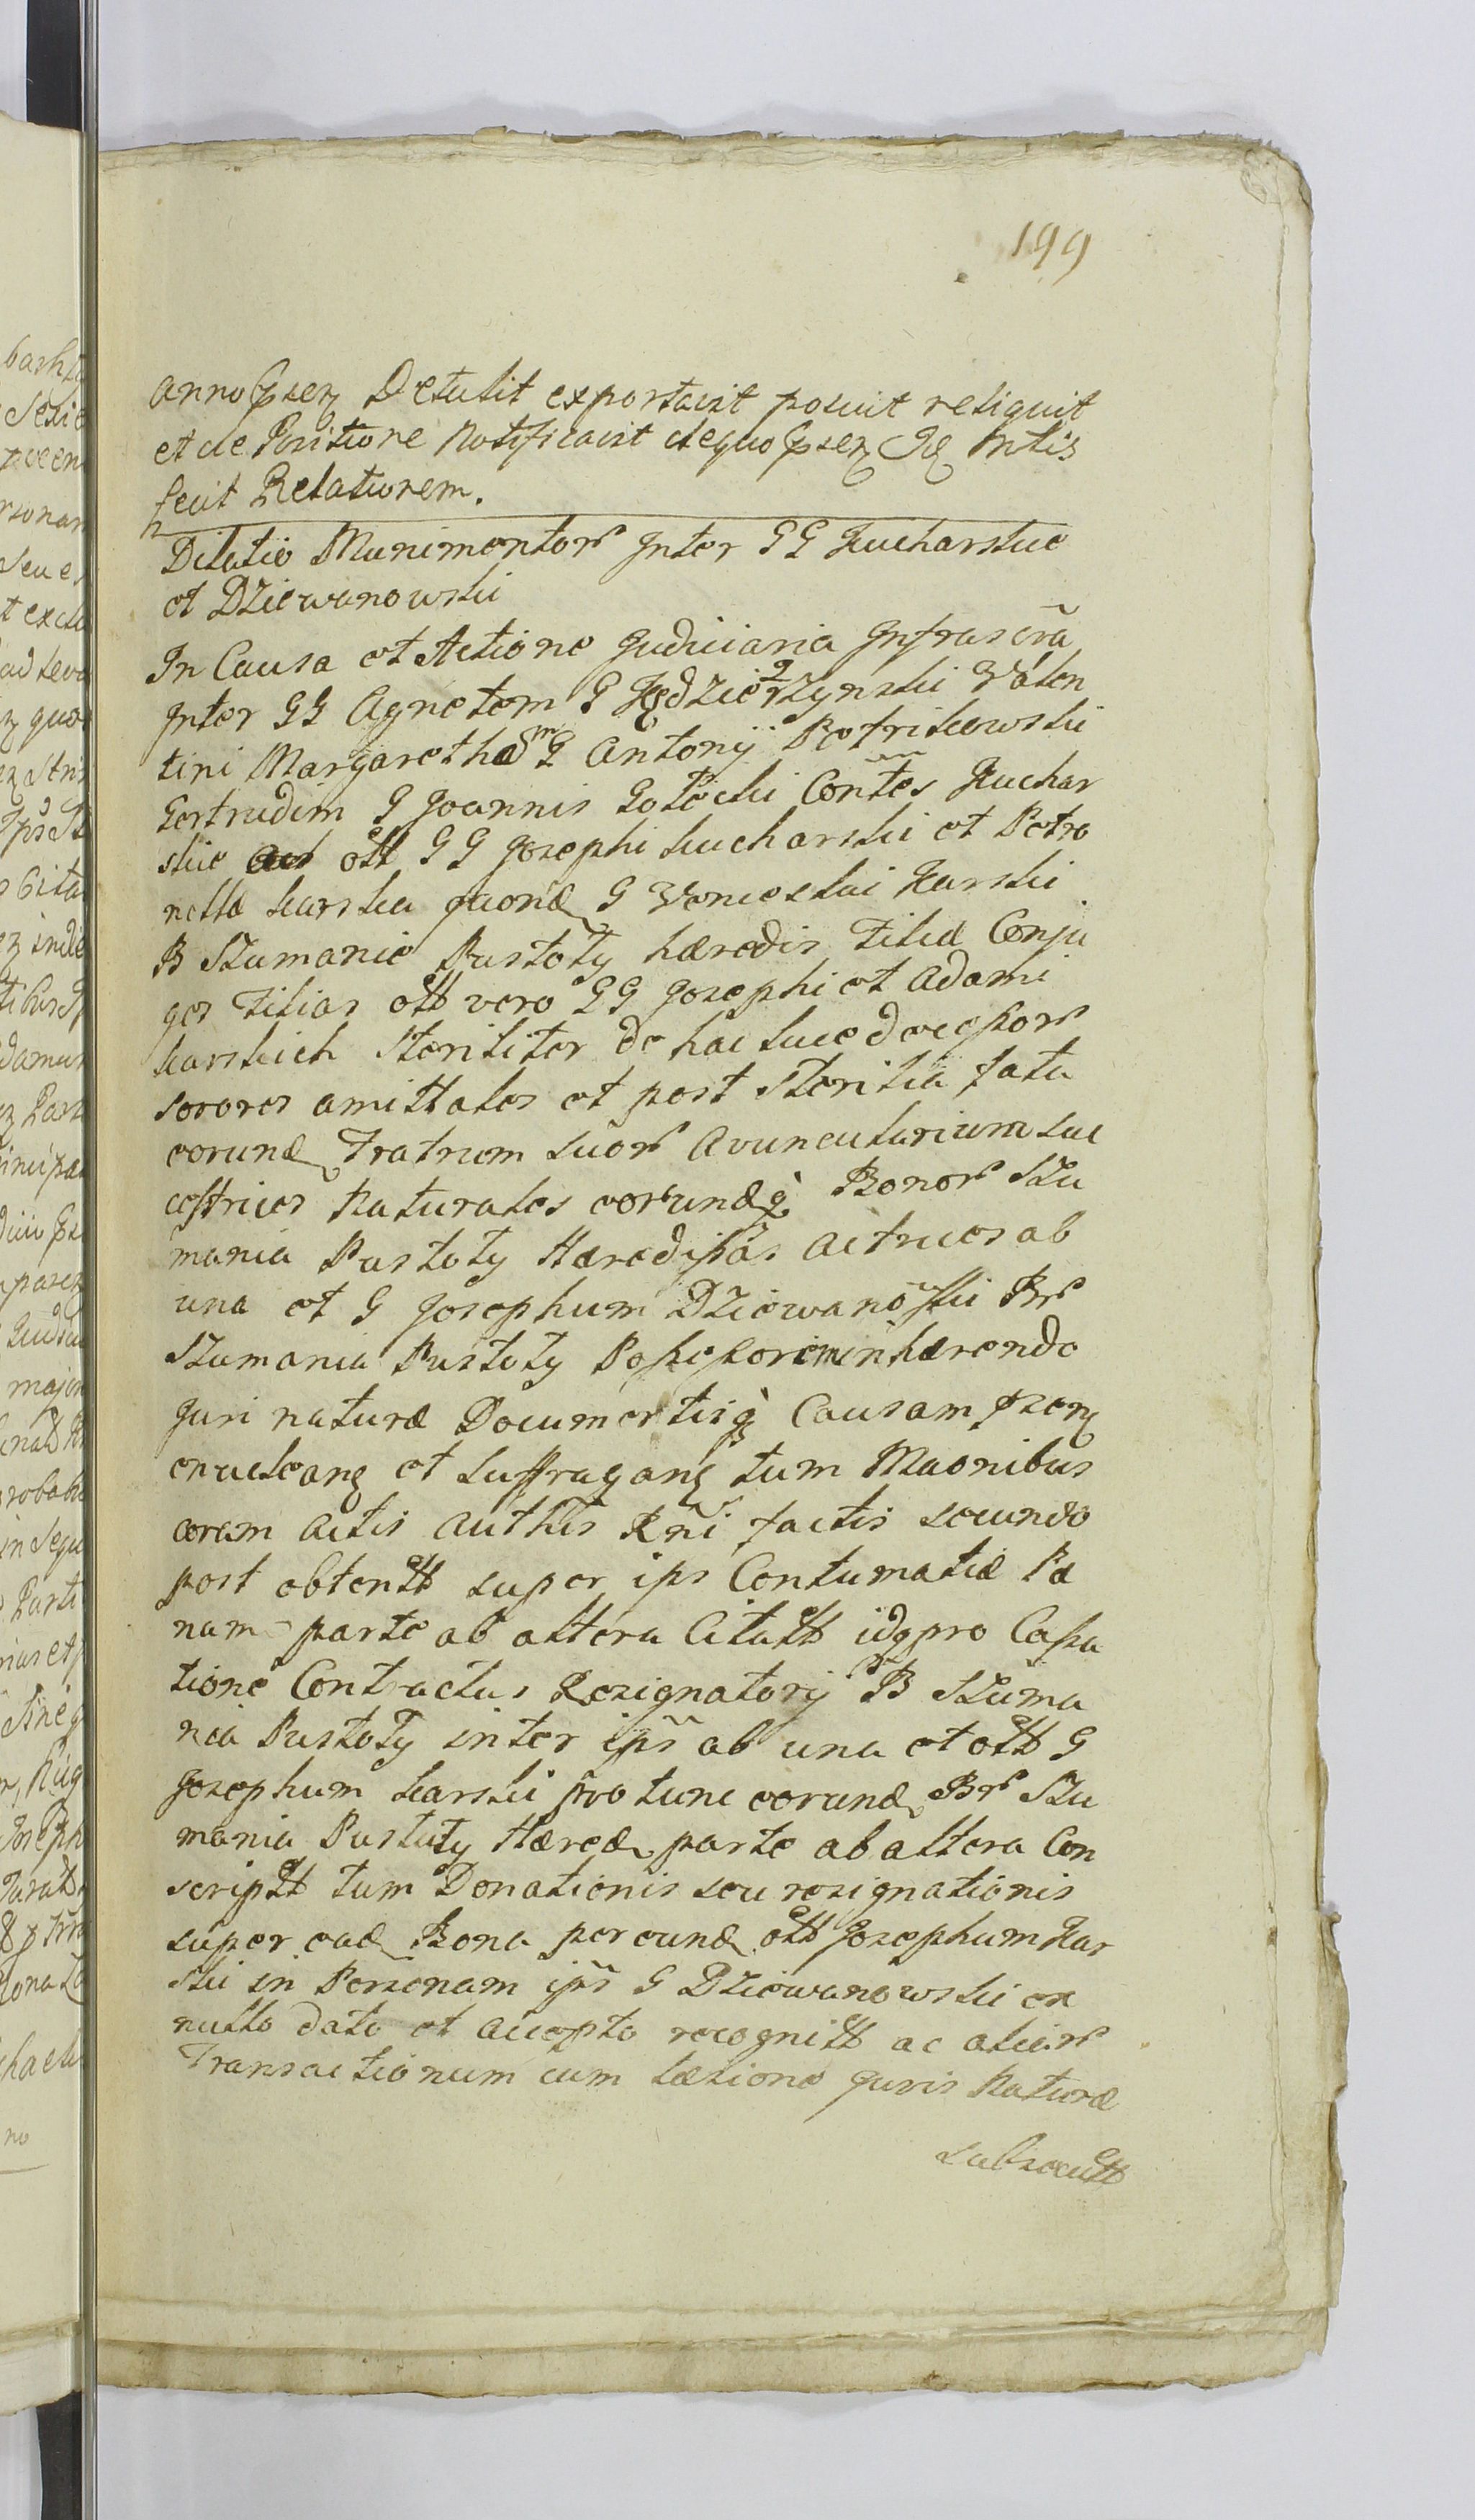 199
anno Psen Detulit exportavit posuit reliquit
et de Positione Notificavit de quo Psen Intis
fecit Relationem.
Dilatio Munimentor Inter GG Kucharskie
et Dziewanowski
In Causa et Actione Judiciaria Infrascra
Inter GG Agnetem G Kędzierzynski Valen
tini Margaretham G Antonij Piotrikowski
Gertrudim G Joannis Gołocki Contes Kuchar
skie ott GG Josephi Kucharski et Petro
nellæ Karska quond G Wenceslai Karski
B Szumanie Pustoty hæredis Filiæ Conju
ges Filias ott vero GG Josephi et Adami
Karskich Steriliter de hac luce decessor
sorores amittales et post Sterilia fata
eorund Fratrum suor Avuncularium suc
cestrices Naturales eorundq Bonor Szu
mania Pustoty Hæredissas Actrices ab
una et G Josephum Dziewanowski Br
Szumania Pustoty Possessorem inhærendo
Juri naturæ Documentisq Causam psen
enuclean et suffragan tum Maonibus
coram Actis Authis Rni factis secundo
post obtentt super ips Contumatiæ Pæ
nam parte ab altera Citatt idq pro Cassa
tione Contractus Resignatorij B Szuma
nia Pustoty inter ips ab una et ott G
Josephum Karski pro tunc eorund Br Szu
mania Pustoty Hæred parte ab altera Con
scriptt tum Donationis seu resignationis
super ead Bona per eund ott Josephum Kar
ski in Personam ips G Dziewanowski ex
nullo dato et accepto recognitt ac aliar
Transactionum cum læsione Juris Naturæ
subsecutt